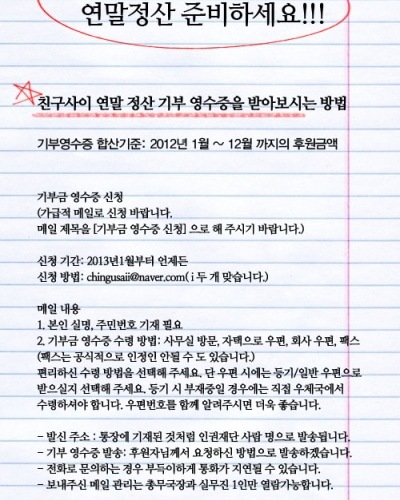 연말정산 준비하세요!!!
친구사이 연말 정산 기부 영수증을 받아보시는 방법
기부영수증 합산기준: 2012년 1월 ~ 12월 까지의 후원금액
기부금 영수증 신청
(가급적 메일로 신청 바랍니다.
메일 제목을 [기부금 영수증 신청] 으로 해 주시기 바랍니다.)
신청 기간: 2013년1월부터 언제든
신청 방법: chingusaii@naver.com( i 두 개 맞습니다.)
메일 내용
1. 본인 실명, 주민번호 기재 필요
2. 기부금 영수증 수령 방법: 사무실 방문, 자택으로 우편, 회사 우편, 팩스
(팩스는 공식적으로 인정인 안될 수 도 있습니다.)
편리하신 수령 방법을 선택해 주세요. 단 우편 시에는 등기/일반 우편으로
받으실지 선택해 주세요. 등기 시 부재중일 경우에는 직접 우체국에서
수령하셔야 합니다. 우편번호를 함께 알려주시면 더욱 좋습니다.
- 발신 주소 : 통장에 기재된 것처럼 인권재단 사람 명으로 발송됩니다.
- 기부 영수증 발송: 후원자님께서 요청하신 방법으로 발송하겠습니다.
- 전화로 문의하는 경우 부득이하게 통화가 지연될 수 있습니다.
- 보내주신 메일 관리는 총무국장과 실무진 1인만 열람가능합니다.